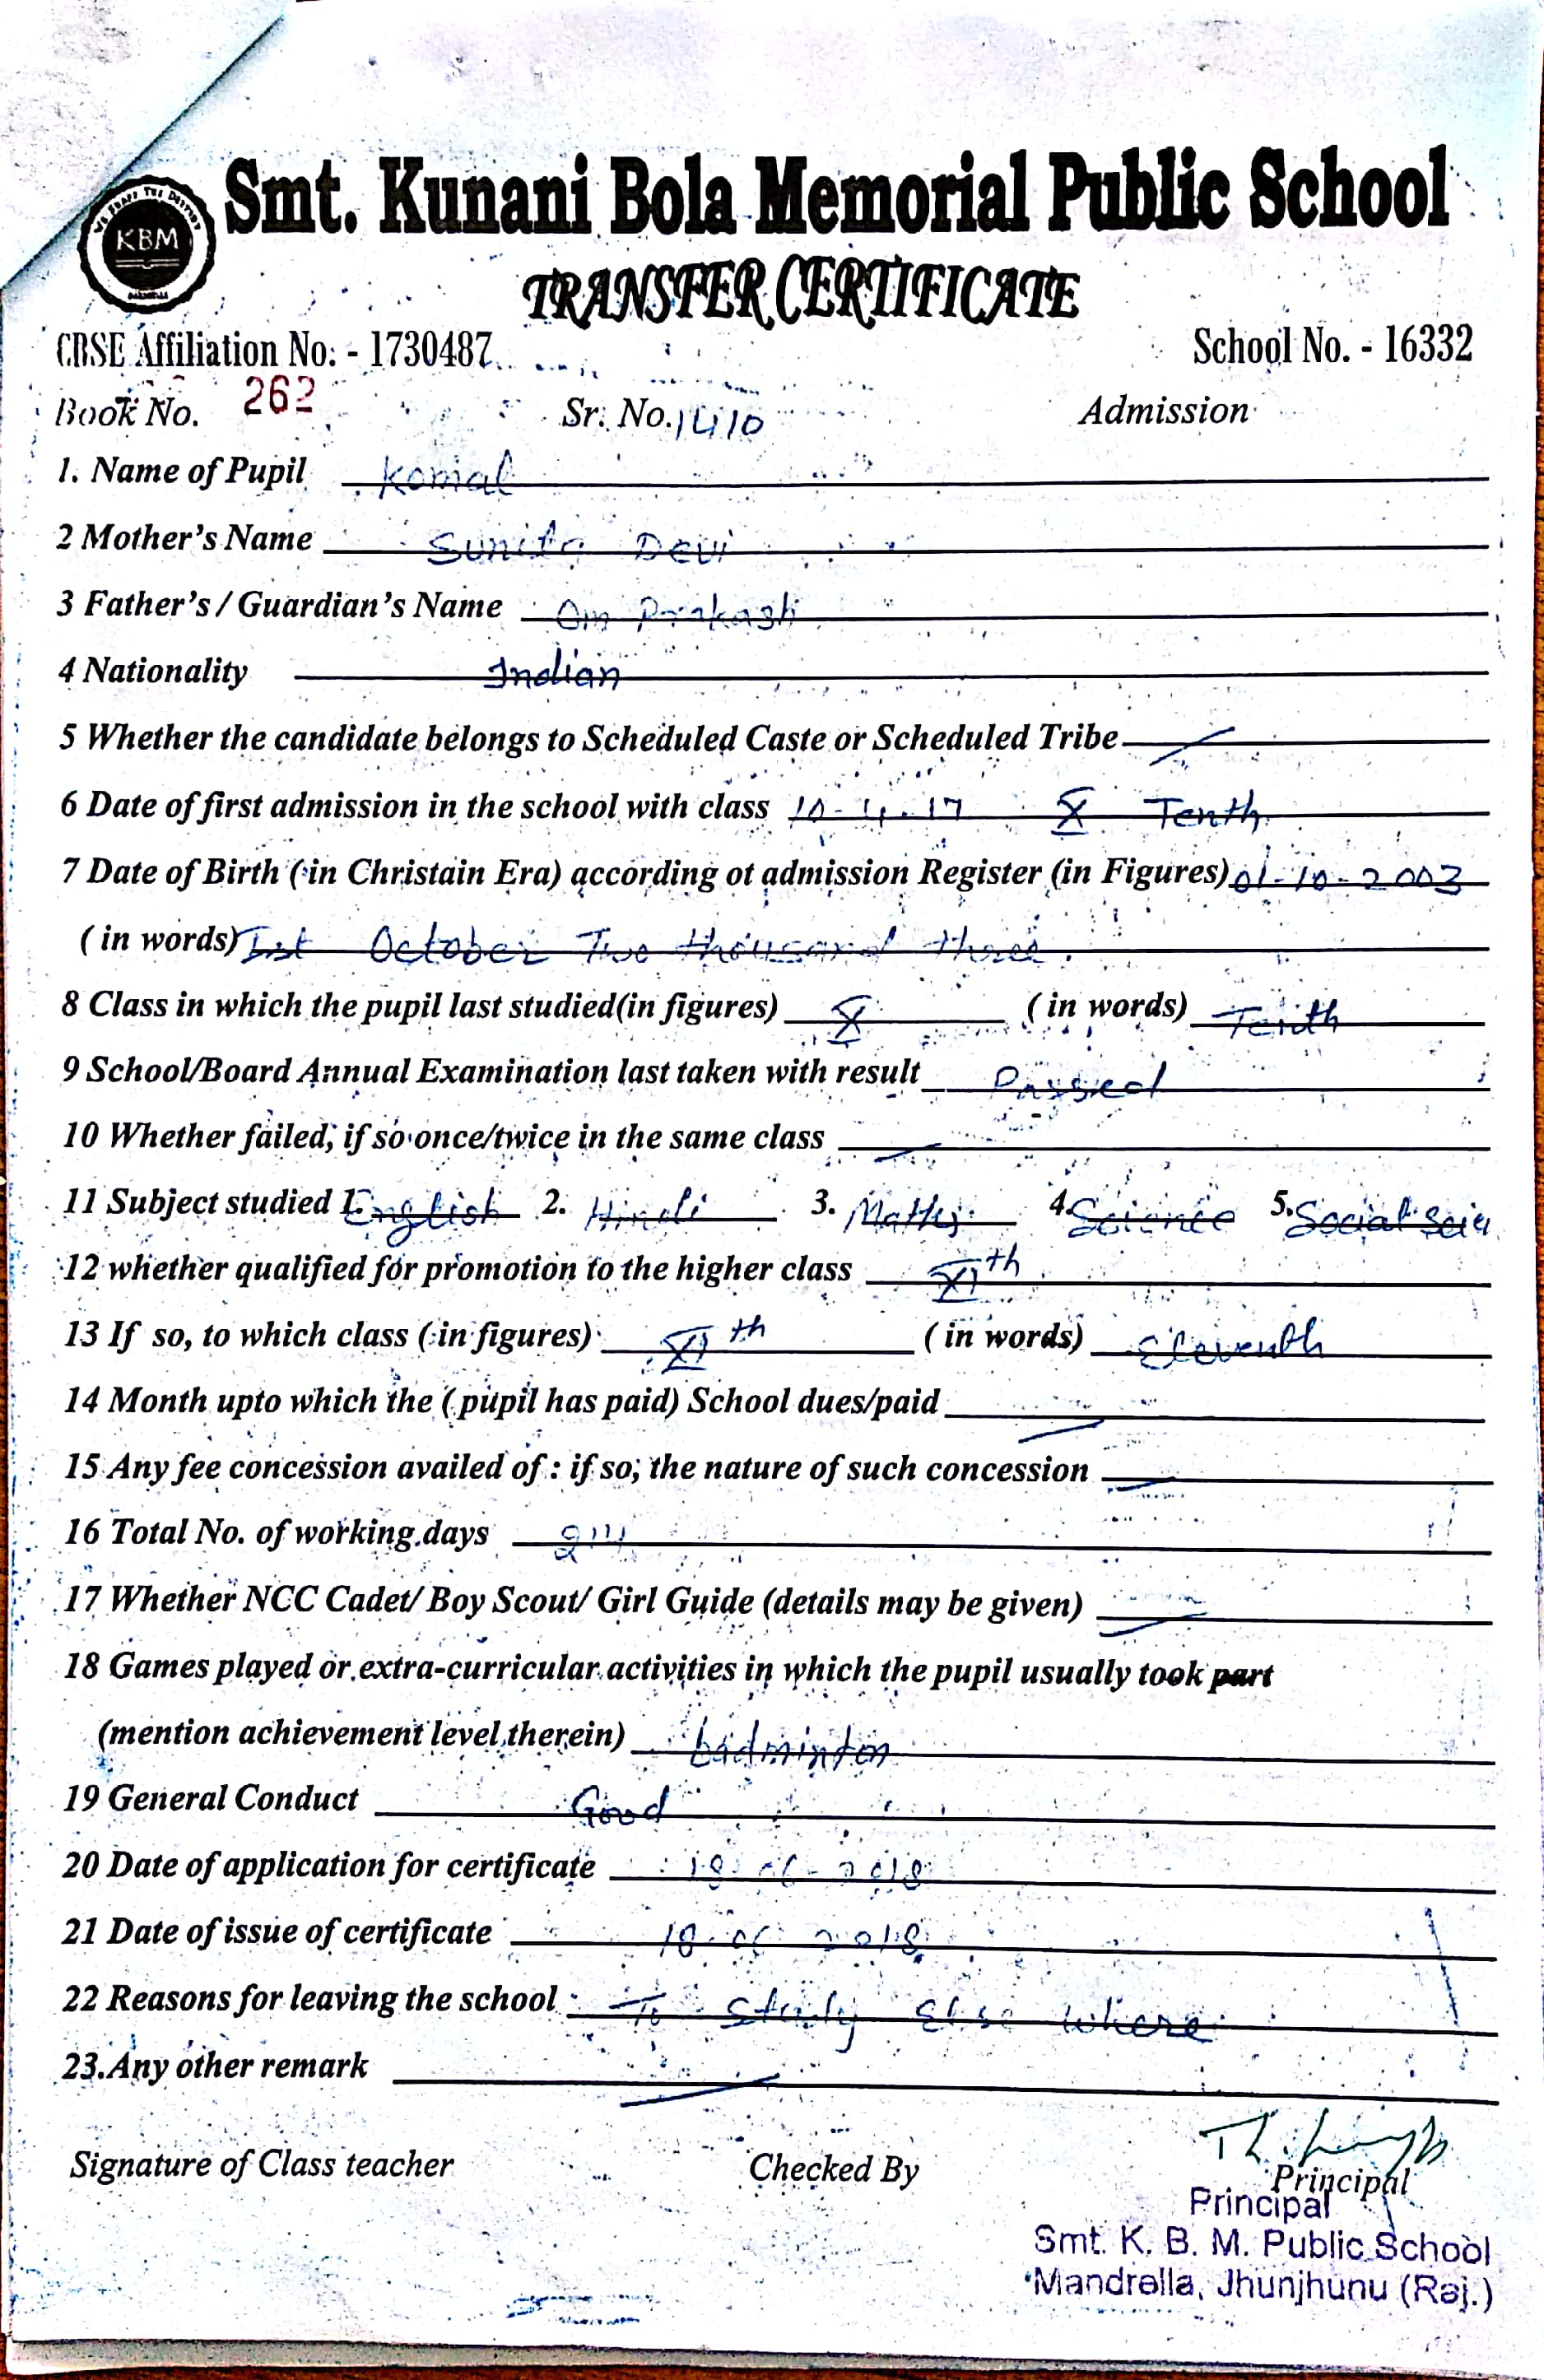 Smt. Kunani Bola Memorial Public School
KBM
TRANSFER CERTIFICATE
CBSE Affiliation No: - 1730487 School No. - 16332
Book No. 262 Sr. No. 1410 Admission
1. Name of Pupil Komal
2 Mother's Name Sunita Devi
3 Father's / Guardian's Name Om Prakash
4 Nationality Indian
5 Whether the candidate belongs to Scheduled Caste or Scheduled Tribe
6 Date of first admission in the school with class 10-4-17 X Tenth
7 Date of Birth (in Christain Era) according ot admission Register (in Figures) 01-10-2003
( in words) Ist October Two thousand three.
8 Class in which the pupil last studied(in figures) X ( in words) Tenth
9 School/Board Annual Examination last taken with result Passed
10 Whether failed, if so once/twice in the same class
11 Subject studied 1. English 2. Hindi 3. Maths 4. Science 5. Social Scie
12 whether qualified for promotion to the higher class XIth
13 If so, to which class ( in figures) XIth ( in words) Eleventh
14 Month upto which the ( pupil has paid) School dues/paid
15 Any fee concession availed of : if so, the nature of such concession
16 Total No. of working days
17 Whether NCC Cadet/ Boy Scout/ Girl Guide (details may be given)
18 Games played or extra-curricular activities in which the pupil usually took part
(mention achievement level therein) badminton
19 General Conduct Good
20 Date of application for certificate 18-06-2018
21 Date of issue of certificate 18-06-2018
22 Reasons for leaving the school To Study Else where
23.Any other remark
Signature of Class teacher Checked By Principal
Principal
Smt. K. B. M. Public School
Mandrella, Jhunjhunu (Raj.)